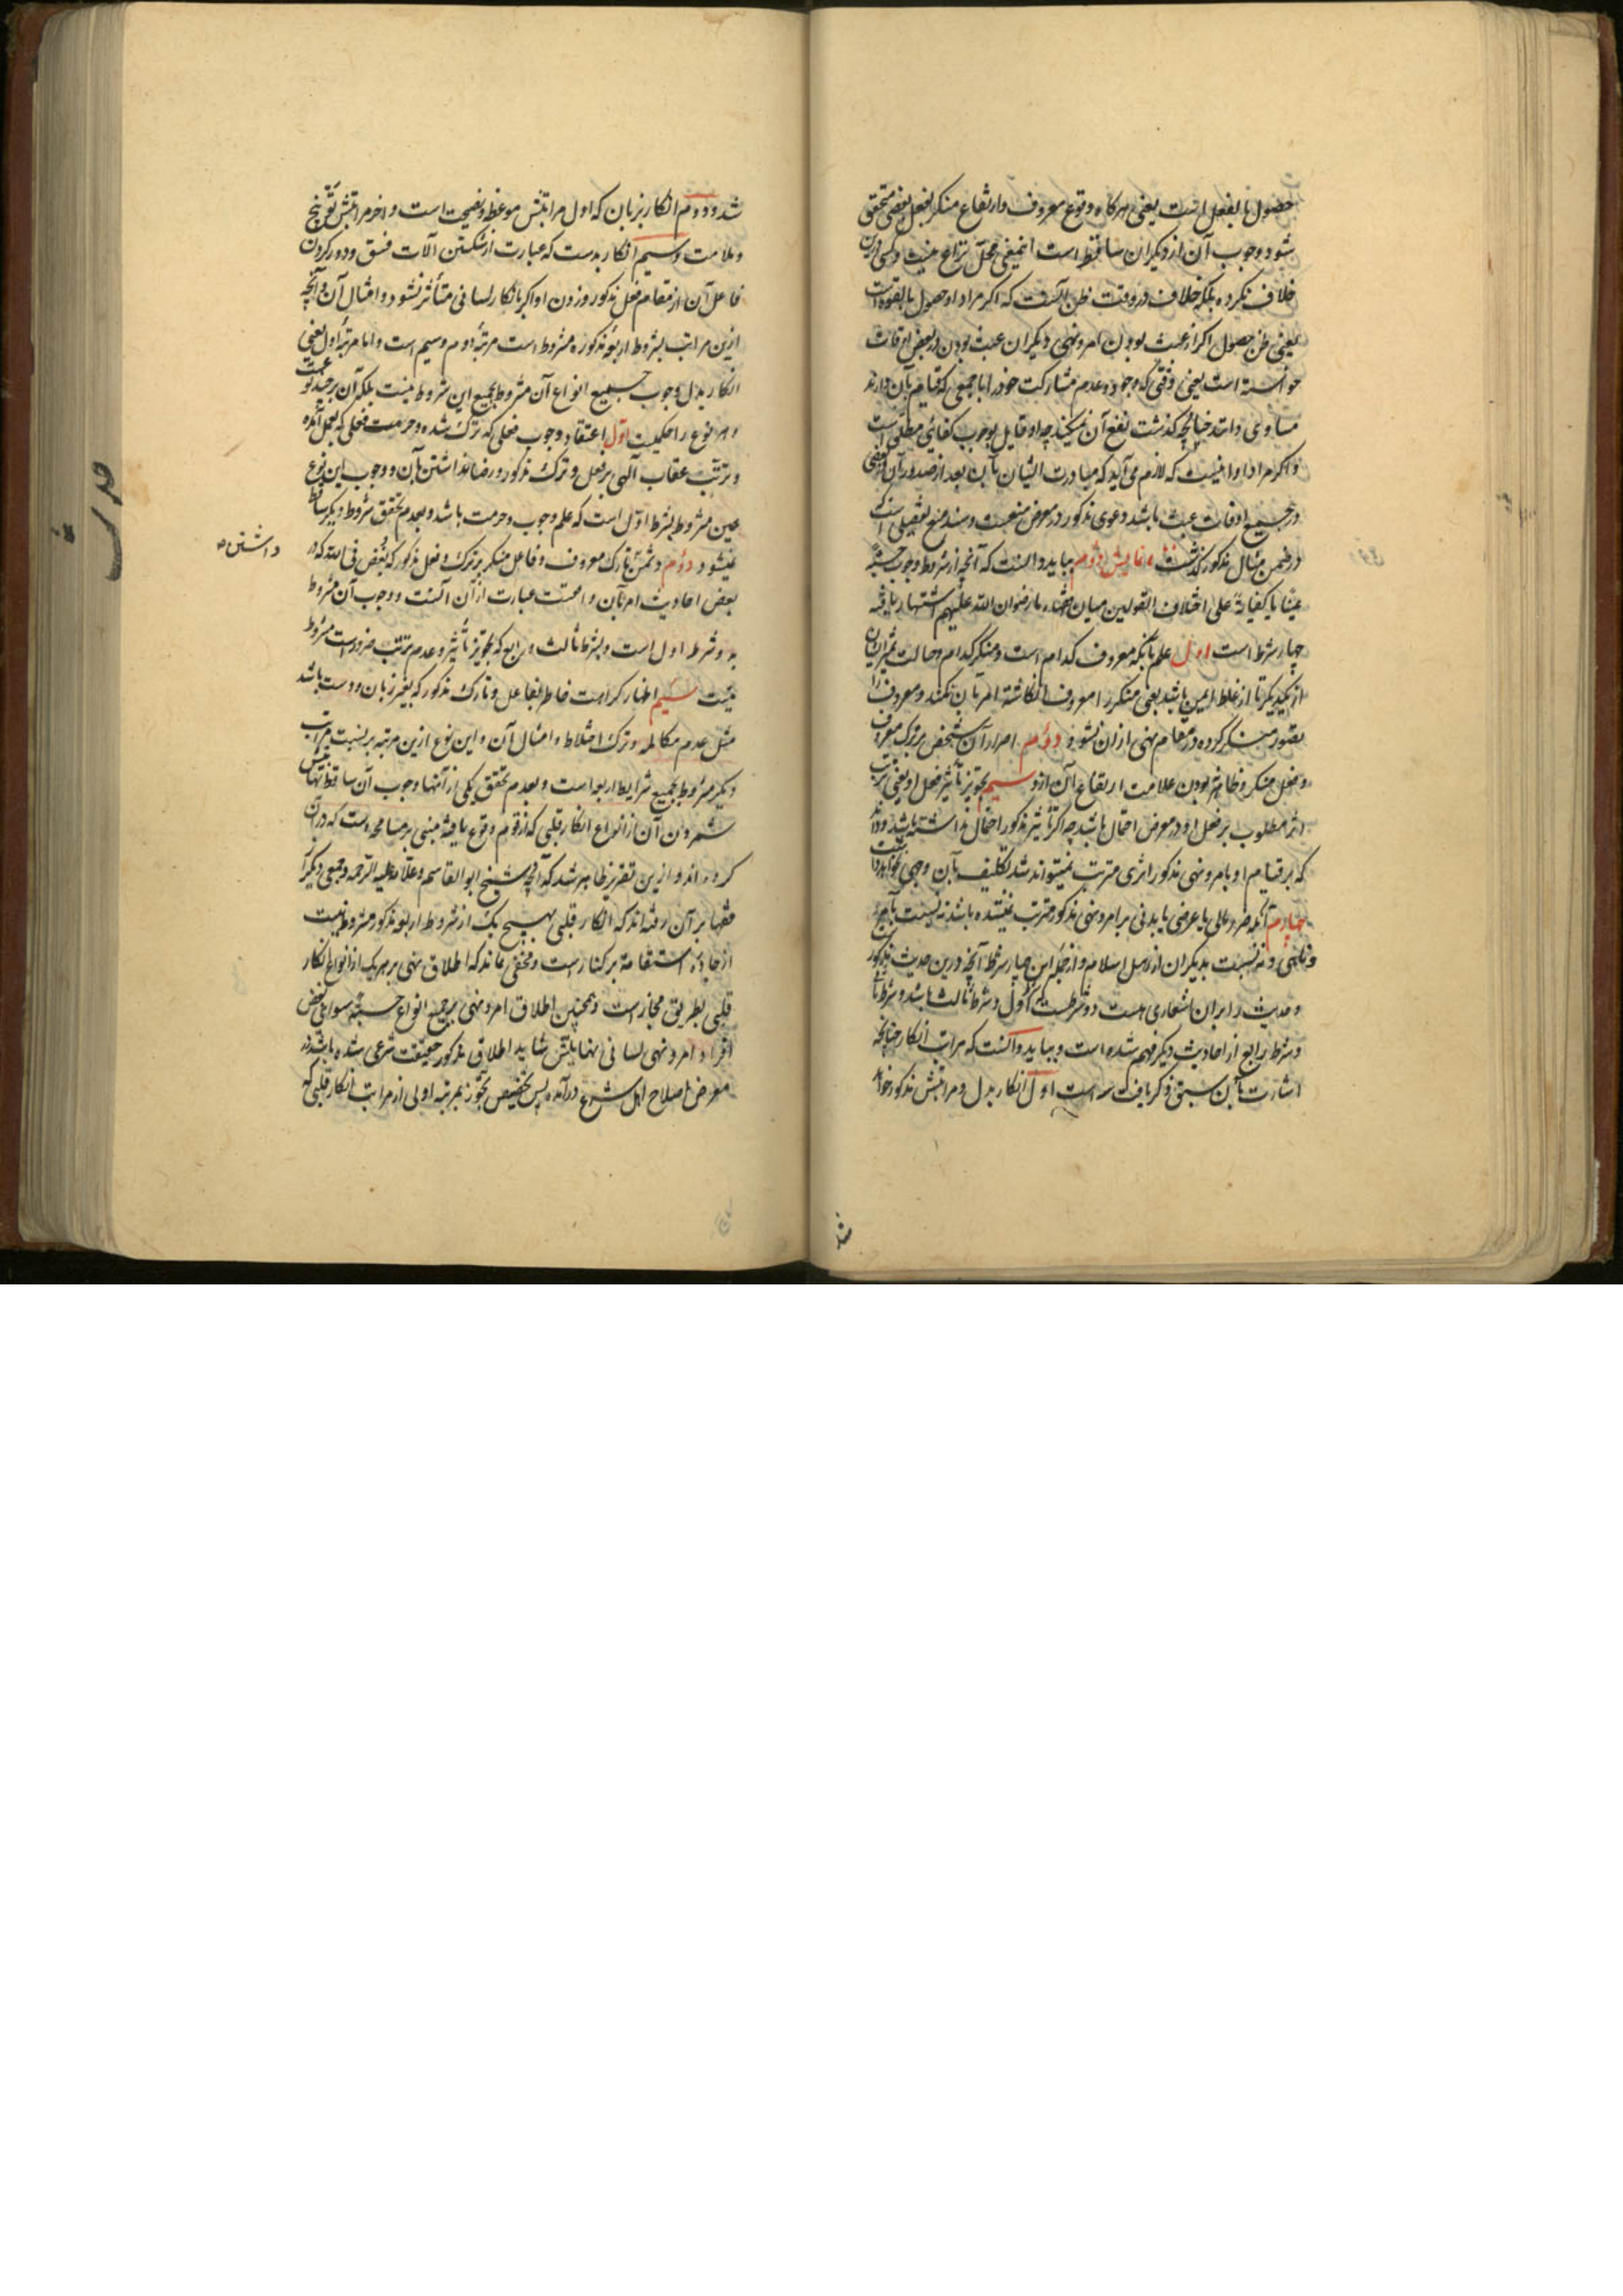 حصول بالفعل است یعنی هرکاه وقوع معروف وارتفاع منکر بفعل بعضی متحقق
شود وجوب آن از دیکران ساقط است اینمعنی محل نزاع نیست وکسی درین
خلاف نکرده بلکه خلاف در وقت ظن آنست که اکر مراد او حصول بالقوه است
یعنی ظن حصول اکر از عبث بودن امر ونهی دیکران عبث بودن در بعض اوقات
خواسته است یعنی وقتی که وجود وعدم مشارکت خود را با جمعی که قیام بآن دارند
مساوی دانند چنانچه کذشت نفع آن نمیکند چه او قایل بوجوب کفائی مطلق است
واکر مراد او اینست که لازم می آید که مبادرت ایشان بآن بعد از صدور آن از بعضی
در جمیع اوقات عبث باشد دعوی مذکور در معرض منعست وسند منع تفصیلی است
در ضمن مثال مذکور کذشت نمایش دوم بباید دانست که آنچه از شروط وجوب حسبه
عینا یا کفایة علی اختلاف القولین میان مجتهدین رضوان الله علیهم اشتهار یافته
چهار شرط است اول علم بآنکه معروف کدام است ومنکر کدام وحالت تمیز ایشان
از یکدیکر تا از غلط ایمن باشد یعنی منکر را معروف انکاشته امر بآن نکند ومعروف را
تصور منکر کرده در مقام نهی از آن نشود دوم اصرار آن شخص بر ترک معروف
وفعل منکر وظاهر نبودن علامت ارتفاع آن ازو سیم تجویز تأثیر فعل او یعنی ترتب
اثر مطلوب بر فعل او در معرض احتمال باشد چه اکر تأثیر مذکور احتمال نداشته باشد وداند
که بر قیام او بامر ونهی مذکور اثری مترتب نمیتواند شد تکلیف بآن وجهی نخواهد داشت
چهارم آنکه ضرر مالی یا عرضی یا بدنی بر امر ونهی مذکور مترتب نشده باشد نه نسبت بآمر
وناهی ونه نسبت بدیکران از اهل اسلام واز جمله این چهار شرط آنچه درین حدیث مذکور
وحدیث را بر آن اشعاری هست دو شرطست که شرط اول وشرط ثالث باشد وشرط ثانی
وشرط رابع از احادیث دیکر فهم شده است وبباید دانست که مراتب انکار چنانچه
اشارت بآن سبق ذکر یافت سه است اول انکار بدل ومراتبش مذکور خواهد
شد
شد ودوم انکار بزبان که اول مراتبش موعظه ونصیحت است واخر مراتبش توبیخ
وملامت وسیم انکار بدست که عبارت از شکستن آلات فسق ودور کردن
فاعل آن از مقام فعل مذکور وزدن او اکر بانکار لسانی متأثر نشود وامثال آن وآنچه
ازین مراتب بشروط اربعه مذکوره مشروط است مرتبه دوم وسیم است واما مرتبه اول یعنی
انکار بدل وجوب جمیع انواع آن مشروط بجمیع این شروط نیست بلکه آن بر چند نوعست
وهر نوع را حکمیست اول اعتقاد وجوب فعلی که ترک شده وحرمت فعلی که بعمل آمده
وترتب عقاب الهی بر فعل وترک مذکور ورضا نداشتن بآن ووجوب این نوع
عین مشروط بشرط اول است که علم وجوب وحرمت باشد وبعدم تحقق شروط دیکر ساقط
نمیشود دوم دشمن تارک معروف وفاعل منکر بر ترک وفعل مذکور که بغض فی الله که در
داشتن ص
بعض احادیث امر بآن واقعست عبارت از آن است ووجوب آن مشروط
بدو شرط اول است وبشرط ثالث ورابع که تجویز تأثیر وعدم ترتب ضرر است مشروط
نیست سیم اظهار کراهت خاطر بفاعل وتارک مذکور که بغیر زبان ودست باشد
مثل عدم مکالمه وترک اختلاط وامثال آن واین نوع ازین مرتبه بر نسبت مراتب
دیکر مشروط بجمیع شرایط اربعه است وبعدم تحقق یکی از آنها وجوب آن ساقط
شمردن آن از انواع انکار قلبی که از قوم وقوع یافته مبنی بر مسامحه است که در آن
کرده اند وازین تقریر ظاهر شد که آنچه شیخ ابوالقاسم وعلامه علیه الرحمه وجمعی دیکر از
فقها بر آن رفته اند که انکار قلبی بهیچ یک از شروط اربعه مذکور مشروط نیست
از جاده استقامة بر کنار است ومخفی نماند که اطلاق نهی بر هر یک از انواع انکار
قلبی بطریق مجاز است وهمچنین اطلاق امر ونهی بر جمیع انواع حسبه سوای بعض
افراد امر ونهی لسانی نهایتش شاید اطلاق مذکور حقیقت شرعی شده باشد ودر
معرض اصلاح اهل شرع درآمده پس تخصیص تجوز بمرتبه اولی از مراتب انکار قلبی که